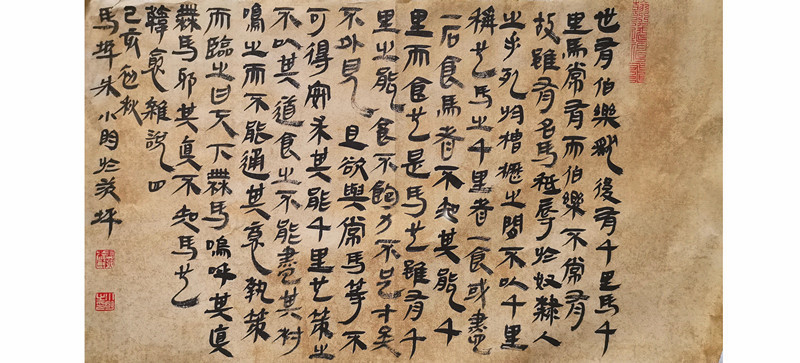 世有伯樂然後有千里馬千
里馬常有而伯樂不常有
故雖有名馬秪辱於奴隸人
之手死於槽櫪之間不以千里
稱也馬之千里者一食或盡
一石食馬者不知其能千
里而食也是馬也雖有千
里之能食不飽力不足才美
不外見且欲與常馬等不
可得安求其能千里也策之
不以其道食之不能盡其材
鳴之而不能通其意執策
而臨之曰天下無馬嗚呼其真
無馬邪其真不知馬也
韓愈雜說四
己亥秋
馬坪朱小於坪